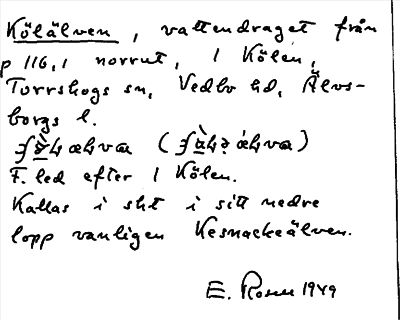 Kölälven, vattendraget från
p 116,1 norrut, 1 Kölen,
Torrskogs sn, Vedbo hd, Älvs-
borgs l.
F. led efter 1 Kölen.
Kallas i sht i sitt nedre
lopp vanligen Kesnackeälven.
E. Rosen 1949